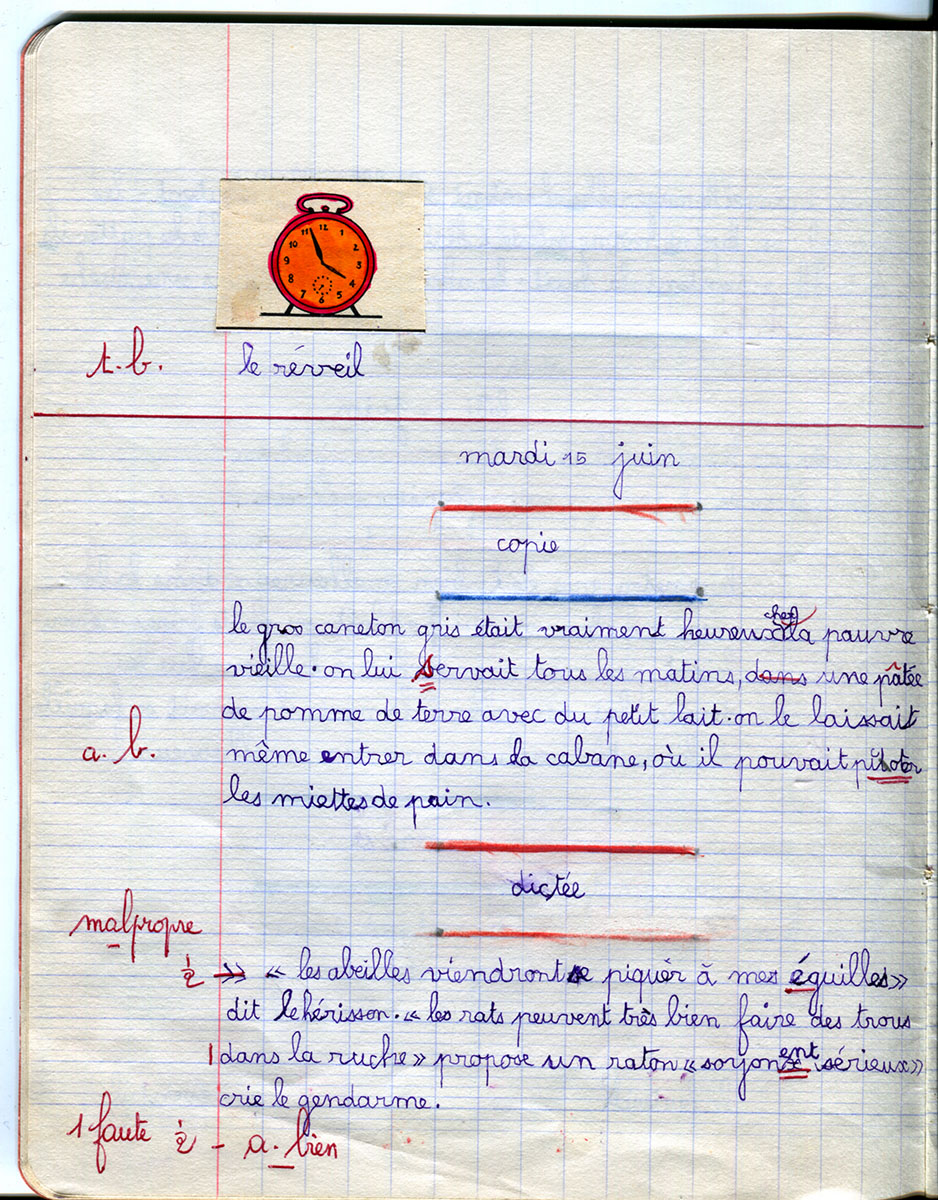 11 12 1
10 2
9 3
8 4
7 6 5
t.b. le réveil
mardi 15 juin
copie
le gros caneton gris était vraiment heureux chez la pauvre
vieille. on lui servait tous les matins, dans une pâtée
de pomme de terre avec du petit lait. on le laissait
a.b. même entrer dans la cabane, où il pouvait
les miettes de pain.
dictée
malpropre
½ » « les abeilles viendront se piquer à mes éguilles »
dit le hérisson. « les rats peuvent très bien faire des trous
1 dans la ruche » propose un raton « soyonent sérieux »
crie le gendarme.
1 faute ½ - a. bien